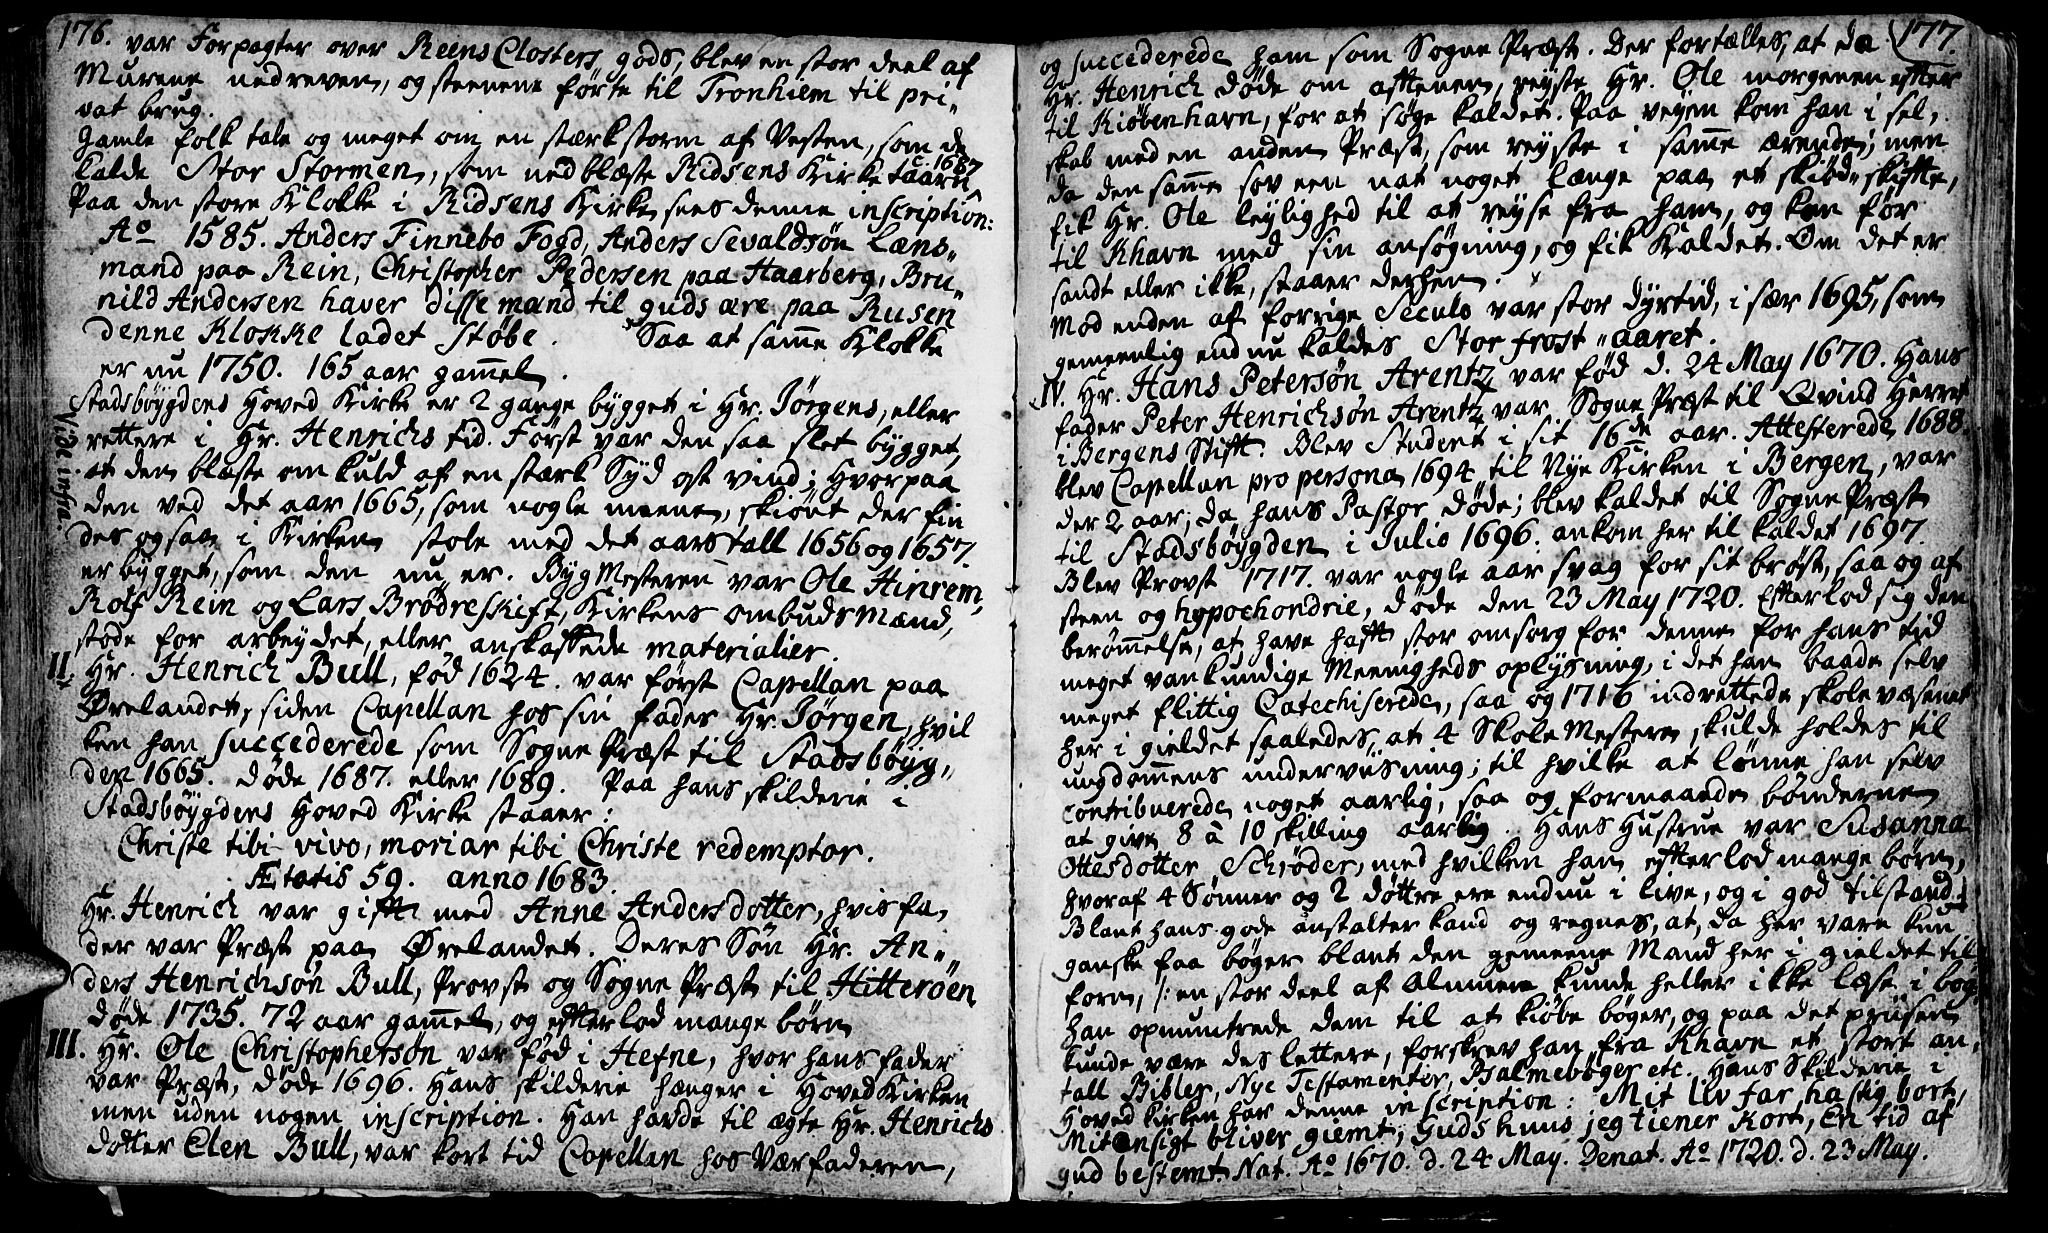 176.
var Forpagter over Reens Closters gods, blev en stor deel af
Murene nedreven, og steenene förte til Tronhiem til pri„
vat brug.
Gamle folk tale og meget om en stærk storm af Vesten, som de
kalde Stor Stormen, som nedblæste Ridsens Kirketaarn c. 1687
Paa den store Klokke i Ridsens Kirke sees denne inscription:
Ao 1585. Anders Finnebo Fogd, Anders Sevaldsön Læns„
mand paa Rein, Christopher Pedersen paa Haarberg, Bru„
nild Andersen haver disse mænd til guds ære paa Rusen
denne Klokke ladet Støbe. Saa at samme Klokke
er nu 1750. 165 aar gammel.
Stadsböygdens Hoved Kirke er 2 gange bygget i Hr. Jörgens, eller
rettere i Hr. Henrichs tid. Först var den saa slet bygget,
Vide infra.
at den blæste omkuld af en stærk Syd ost vind; hvorpaa
den ved det aar 1665, som nogle meene, skiönt der fin
des ogsaa i Kirken stole med det aarstall 1656 og 1657.
er bygget, som den nu er. BygMesteren var Ole Hinrem,
Rolf Rein og Lars Brødreskift, Kirkens ombudsmænd,
stode for arbeydet, eller anskaffede materialier.
II. Hr. Henrich Bull, fød 1624. var först Capellan paa
Ørelandet, siden Capellan hos sin fader Hr. Jörgen, hvil
ken han succederede som Sogne Præst til Stadsböyg„
den 1665. døde 1687. eller 1689. Paa hans skilderie i
Stadsböygdens Hoved Kirke staaer:
Christe tibi vivo, moriar tibi Christe redemptor.
Ætatis 59. anno 1683.
Hr. Henrich var gift med Anne Andersdotter, hvis fa,
der var Præst paa Ørelandet. Deres Søn Hr. An„
ders Henrichsön Bull, Provst og Sogne Præst til Hitteröen
døde 1735. 72 aar gammel, og efterlod mange børn
III. Hr. Ole Christophersön var fød i Hefne, hvor hans fader
var Præst, døde 1696. Hans skilderie hænger i HovedKirken
men uden nogen inscription. Han havde til ægte Hr. Henrichs
dotter Elen Bull, var kort tid Capellan hos Værfaderen,
177.
og succederede ham som Sogne Præst. Der fortælles, at da
Hr. Henrich døde om aftenen, reyste Hr. Ole morgenen efter
til Kiøbenhavn, for at søge kaldet. Paa veyen kom han i sel,
skab med en anden Præst, som reyste i samme ærende; men
da den samme sov een nat noget længe paa et skiøds„skifte,
fik Hr. Ole leylighed til at reyse fra ham, og kom før
til Khavn med sin ansøgning, og fik Kaldet. Om det er
sandt eller ikke, staaer derhen.
Mod enden af forrige Seculo var stor dyrtid, i sær 1695, som
gemeenlig endnu kaldes Stor frost„aaret.
IV. Hr. Hans Petersøn Arentz var fød d. 24 May 1670. Hans
fader Peter Henrichsøn Arentz var Sogne Præst til Qvind Herret
i Bergens Stift. Blev Student i sit 16de aar. Attesterede 1688.
blev Capellan pro persona 1694 til Nye Kirken i Bergen, var
der 2 aar; da hans Pastor døde; blev kaldet til Sogne Præst
til Stadsböygden i Julio 1696. ankom her til kaldet 1697.
Blev Provst 1717. var nogle aar svag for sit brøst, saa og af
steen og hypochondrie, døde den 23 May 1720. Efterlod sig den
berömmelse, at have haft stor omsorg for denne for hans tid
meget vankundige Meenigheds oplysning, i det han baade selv
meget flittig Catechiserede, saa og 1716 indrettede skolevæsenet
her i gieldet saaledes, at 4 Skole Mestere skulde holdes til
ungdommens undervisning; til hvilke at lønne han selv
contribuerede noget aarlig, saa og formaaede bønderne
at give 8 à 10 skilling aarlig. Hans Hustrue var Susanna
Ottesdotter Schrøder, med hvilken han efterlod mange børn,
hvoraf 4 Sønner og 2 døttre ere endnu i live, og i god tilstand.
Blant hans gode anstalter kand og regnes, at, da her vare kun
ganske faa bøger blant den gemeene Mand her i gieldet til
forn, /: en stor deel af Almuen kunde heller ikke læse i bog
han opmuntrede dem til at kiøbe bøger, og paa det prüsen
kunde være des lettere, forskrev han fra Khavn et stort an,
tall Bibler, Nye Testamenter, Psalmebøger etc. Hans Skilderie i
Hoved kirken har denne inscription: Mit liv far hastig bort,
Mit ansigt bliver giemt, Guds huus jeg tiener Kort, En tid af
gud bestemt. Nat. Ao 1670. d. 24 May. Denat. Ao 1720. d. 23 May.